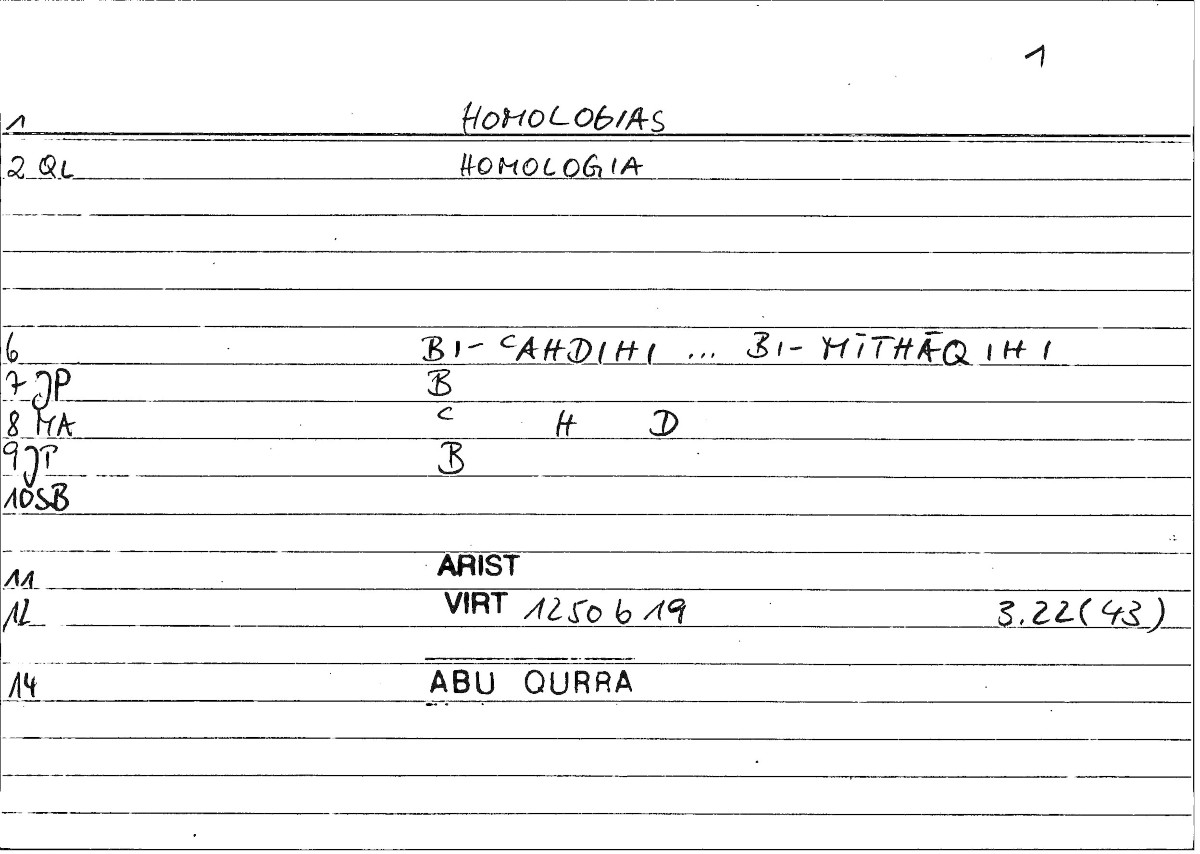 1
1 HOMOLOGIAS
2 QL HOMOLOGIA
6 BI-ᶜAHDIHI ... BI-MĪTHĀQIHI
7 JP B
8 MA ᶜ H D
9 JP B
10 SB
11 ARIST
12 VIRT 1250 b 19 3.22(43)
14 ABU QURRA